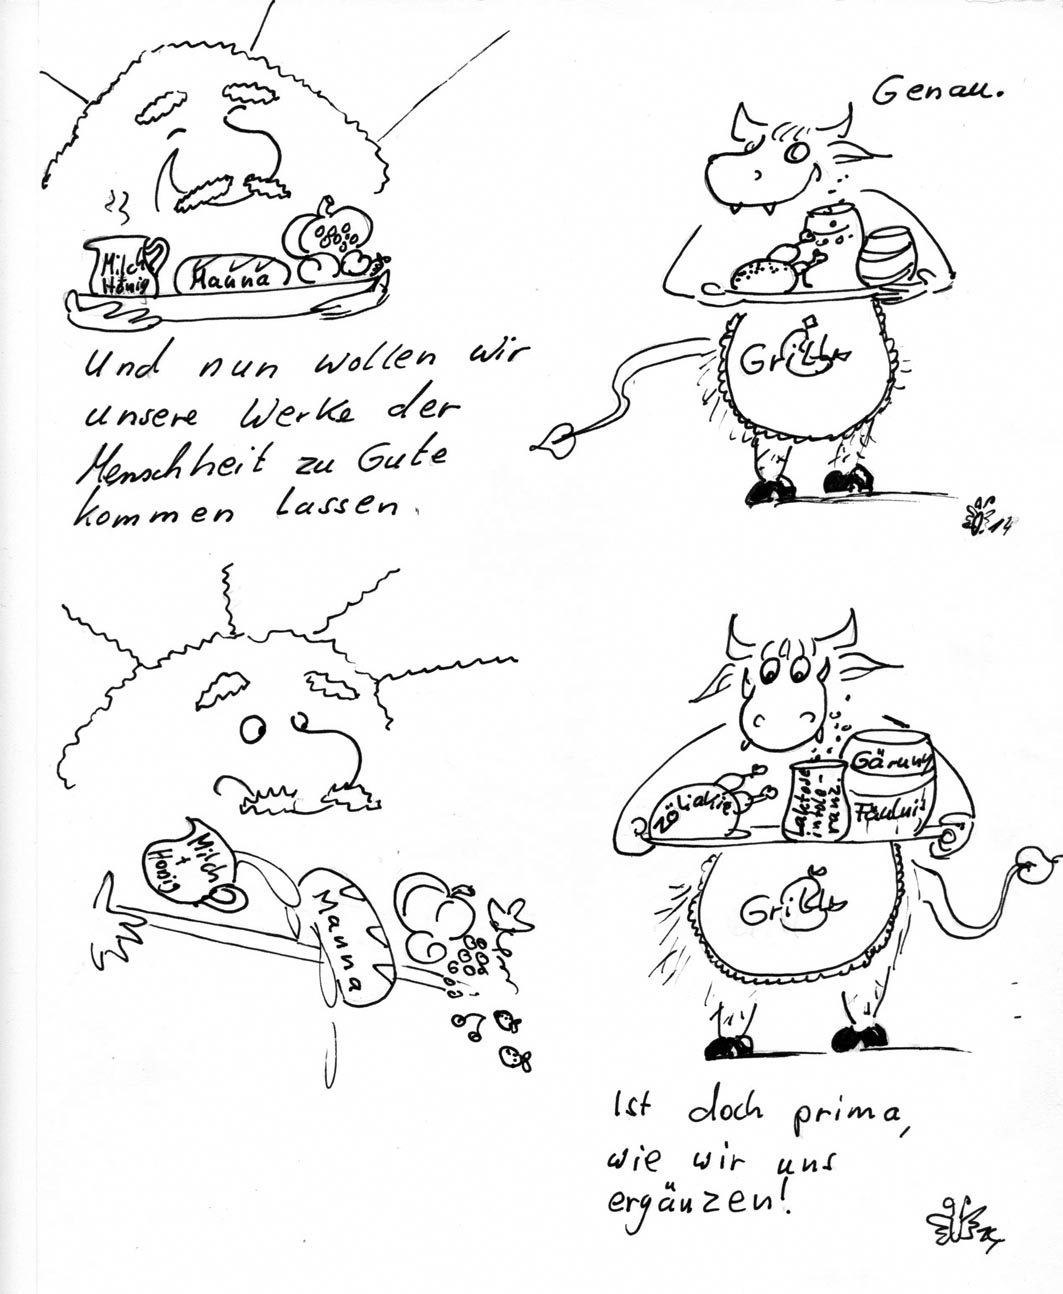 Genau.
Milch
+
Honig
Manna
Grill
Und nun wollen wir
unsere Werke der
Menschheit zu Gute
kommen lassen.
14
Milch
+
Honig
Manna
Zöliakie
Laktose
intole-
ranz
Gärung
Fäulnis
Grill
Ist doch prima,
wie wir uns
ergänzen!